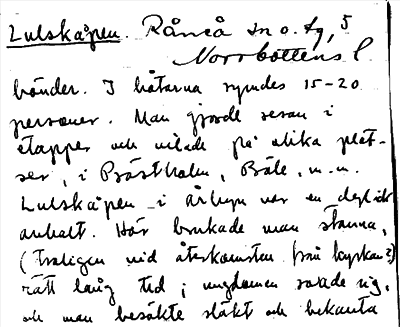 Lulskåpen. Råneå sn o. tg, 5
Norrbottens l.
bönder. I båtarna rymdes 15-20
personer. Man gjorde resan i
etapper och vilade på olika plat-
ser, i Prästholm, Böle, m.m.
Lulskåpen i årbyn var en dylik
anhalt. Här brukade man stanna,
(troligen vid återkomsten från kyrkan?)
rätt lång tid, ungdomen roade sig,
och man besökte släkt och bekanta